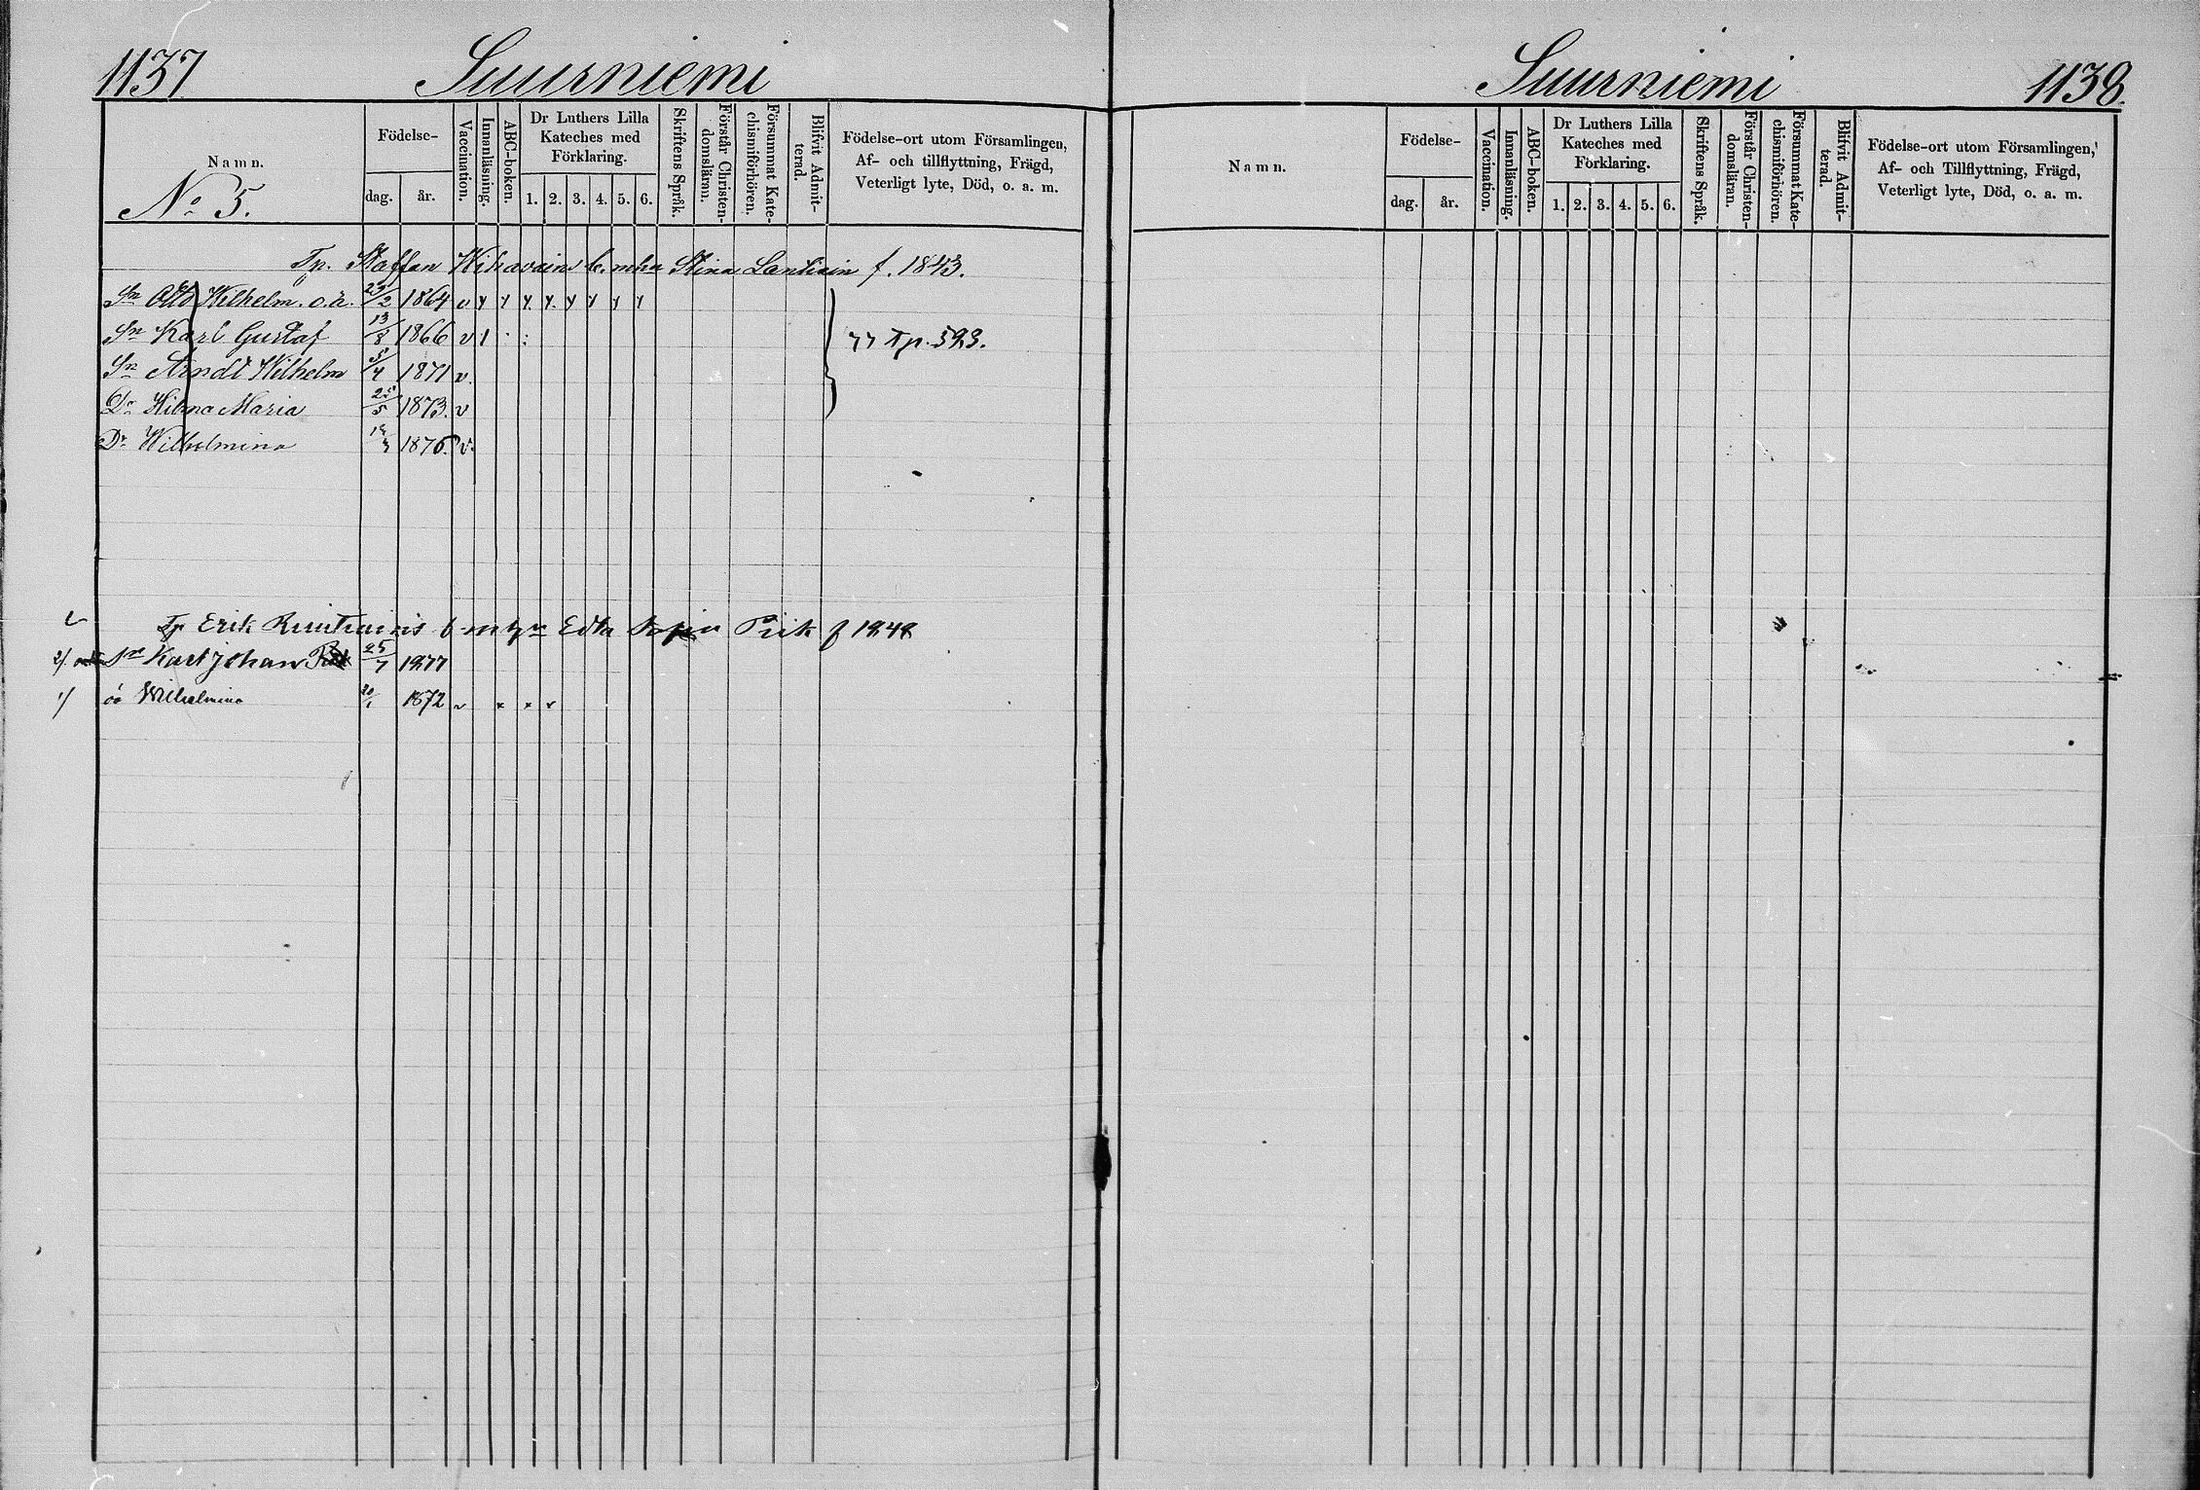 1137 Suurniemi
Namn.
No 5.
Födelse-
dag. år.
Vaccination.
Innanläsning.
ABC-boken.
Dr Luthers Lilla
Kateches med
Förklaring.
1. 2. 3. 4. 5. 6.
Skriftens Språk.
Förstår Christen-
domsläran.
Försummat Kate-
chismiförhören.
Blifvit Admit-
terad.
Födelse-ort utom Församlingen,
Af- och tillflyttning, Frägd,
Veterligt lyte, Död, o. a. m.
Tp. Staffan Wihavains b. m. hu Stina f. 1843.
Sn Otto Wilhelm. o.ä. 23/2 1864 v y y y y y y y y
Sn Karl Gustaf 13/8 1866 v 1
77 Tp. 523.
Sn Arndt Wilhelm 5/4 1871 v.
Dr Hilma Maria 25/5 1873. v
Dr Wilhelmina 1876. v.
Tp Erik b m hu Edla Sofia f 1848
2/. Sn Karl Johan 25/7 1877
1/ oä Wilhelmina 20/1 1872 v x x x
Suurniemi 1138.
Namn.
Födelse-
dag. år.
Vaccination.
Innanläsning.
ABC-boken.
Dr Luthers Lilla
Kateches med
Förklaring.
1. 2. 3. 4. 5. 6.
Skriftens Språk.
Förstår Christen-
domsläran.
Försummat Kate-
chismiförhören.
Blifvit Admit-
terad.
Födelse-ort utom Församlingen,
Af- och Tillflyttning, Frägd,
Veterligt lyte, Död, o. a. m.